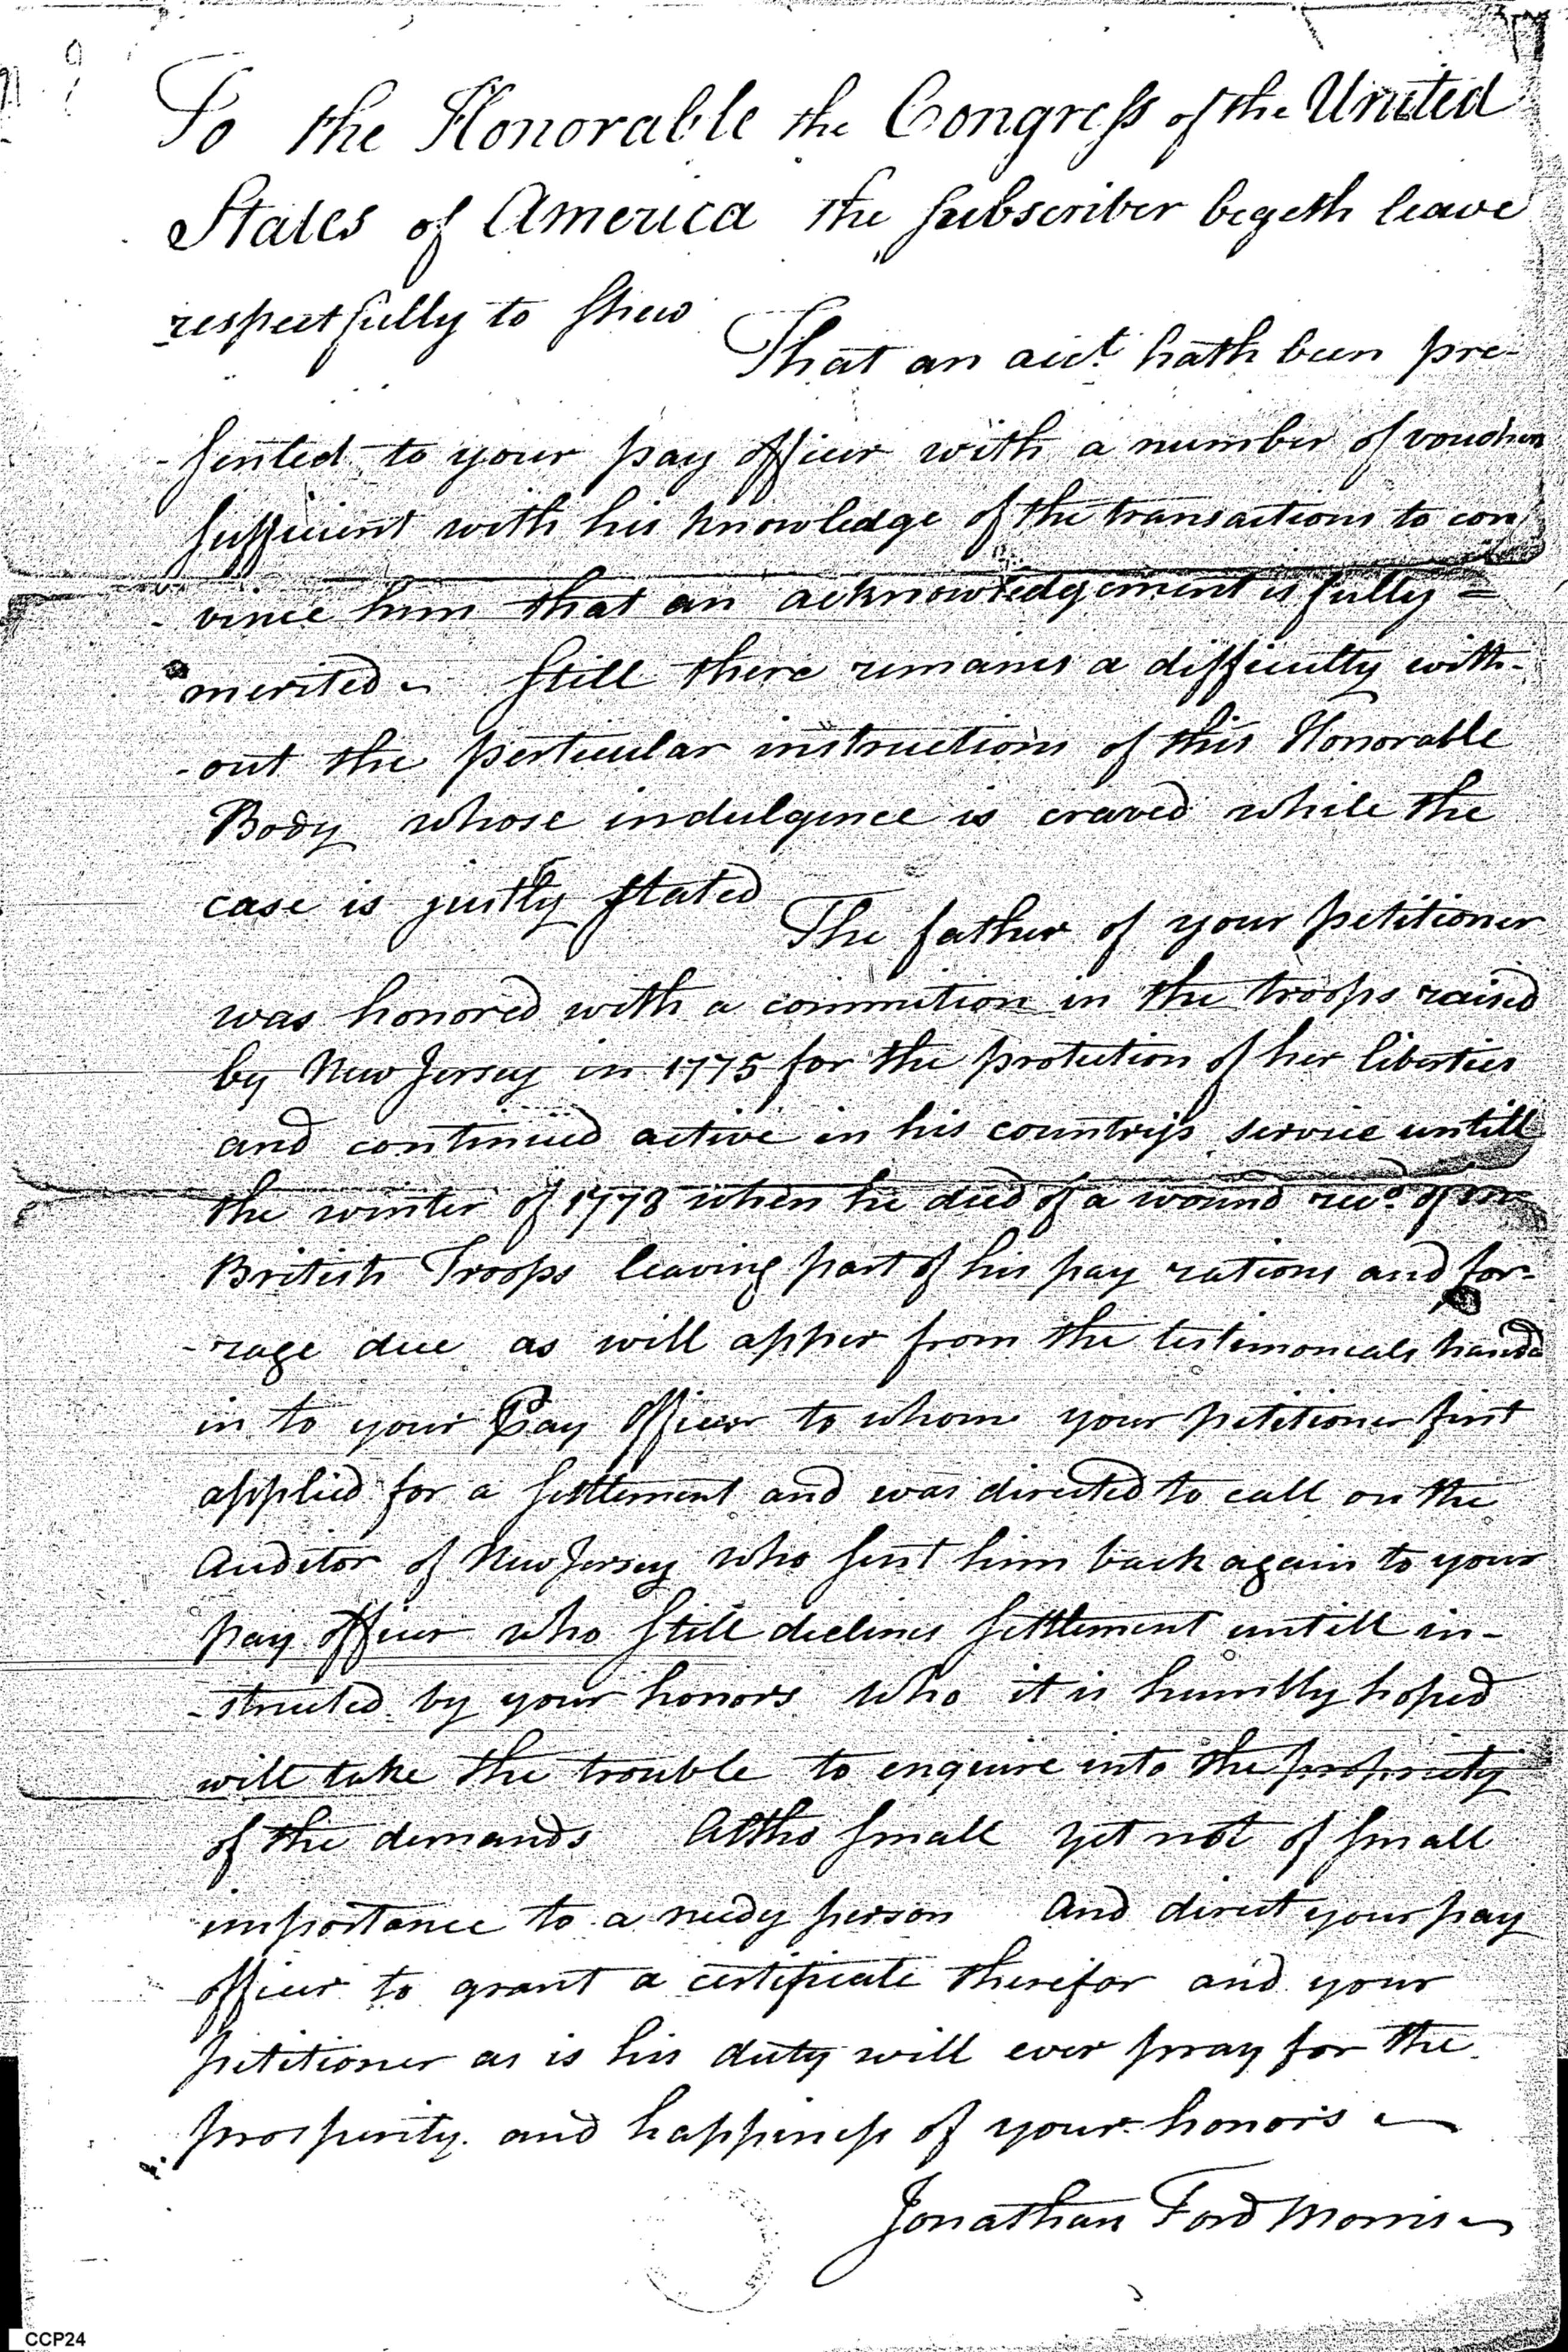 To the Honorable the Congress of the United
States of America the subscriber begeth leave
respectfully to shew
That an acct. hath been pre-
-sented to your pay officer with a number of vouchers
sufficient with his knowledge of the transactions to con
-vince him that an acknowledgement is fully =
merited - Still there remains a difficulty with-
-out the perticular instructions of this Honorable
Body whose indulgence is craved while the
case is justly stated
The father of your petitioner
was honored with a commition in the troops raised
by New Jersey in 1775 for the protection of her liberties
and continued active in his country's service untill
the winter of 1778 when he died of a wound recd. of
British Troops leaving part of his pay rations and for-
-rage due as will apper from the testimonials handd
in to your Pay Officer to whom your petitioner first
applied for a settlement and was directed to call on the
Auditor of New Jersey who sent him back again to your
pay officer who still declines settlement untill in-
-structed by your honors who it is humbly hoped
will take the trouble to enquire into the propriety
of the demands Altho small yet not of small
importance to a needy person And direct your pay
officer to grant a certificate therefor and your
petitioner as is his duty will ever pray for the
prosperity. and happiness of your honors
Jonathan Ford Morris
CCP24